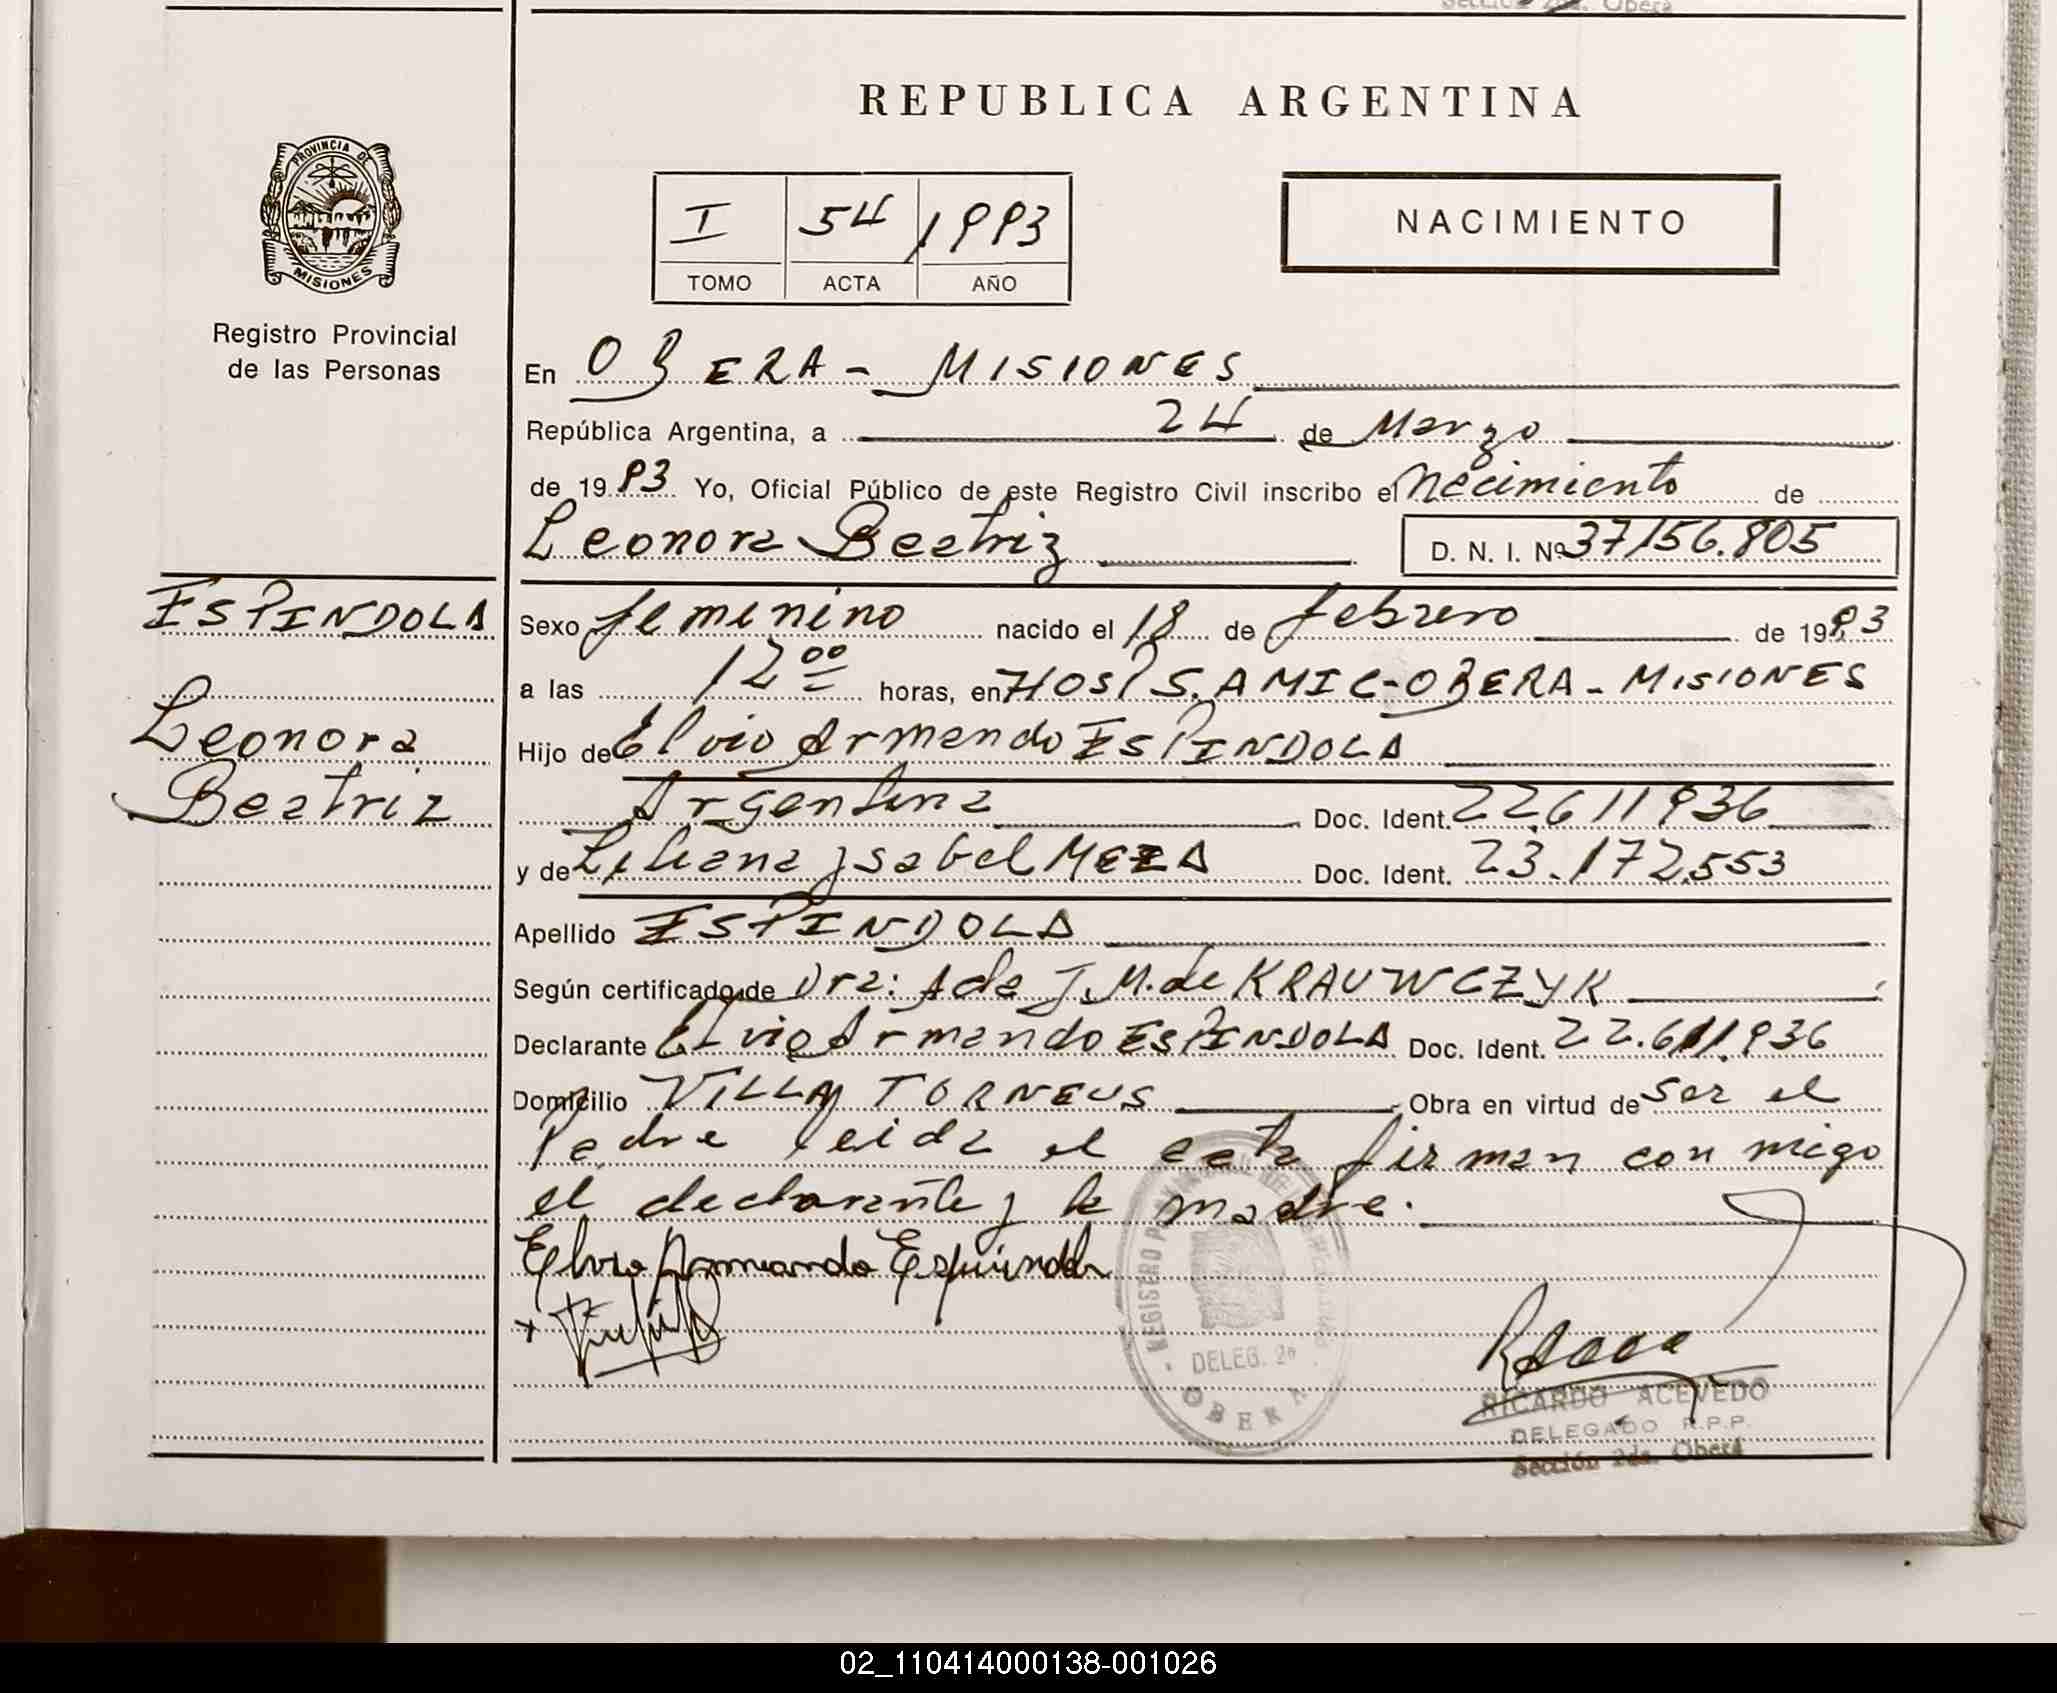 Sección 2da. Oberá
REPUBLICA ARGENTINA
PROVINCIA DE
MISIONES
Registro Provincial
de las Personas
I 54 1993
TOMO ACTA AÑO
NACIMIENTO
En OBERA - MISIONES
República Argentina, a 24 de Marzo
de 1993 Yo, Oficial Público de este Registro Civil inscribo el Nacimiento de
Leonora Beatriz D. N. I. Nº 37156.805
ESPINDOLA
Leonora
Beatriz
Sexo femenino nacido el 18 de febrero de 1993
a las 12 00 horas, en HOSP S. AMIC - OBERA - MISIONES
Hijo de Elvio Armando ESPINDOLA
Argentina Doc. Ident. 22611936
y de Liliana Isabel MEZA Doc. Ident. 23.172.553
Apellido ESPINDOLA
Según certificado de Dra: Ada J. M. de KRAUWCZYK
Declarante Elvio Armando ESPINDOLA Doc. Ident. 22.611.936
Domicilio VILLA TORNEUS Obra en virtud de ser el
Padre leida el acta firman con migo
el declarante y la madre.
Elvio Armando Espindola
REGISTRO PROVINCIAL DE LAS PERSONAS
DELEG. 2ª
OBERA
RICARDO ACEVEDO
DELEGADO R.P.P.
Sección 2da. Oberá
02_110414000138-001026